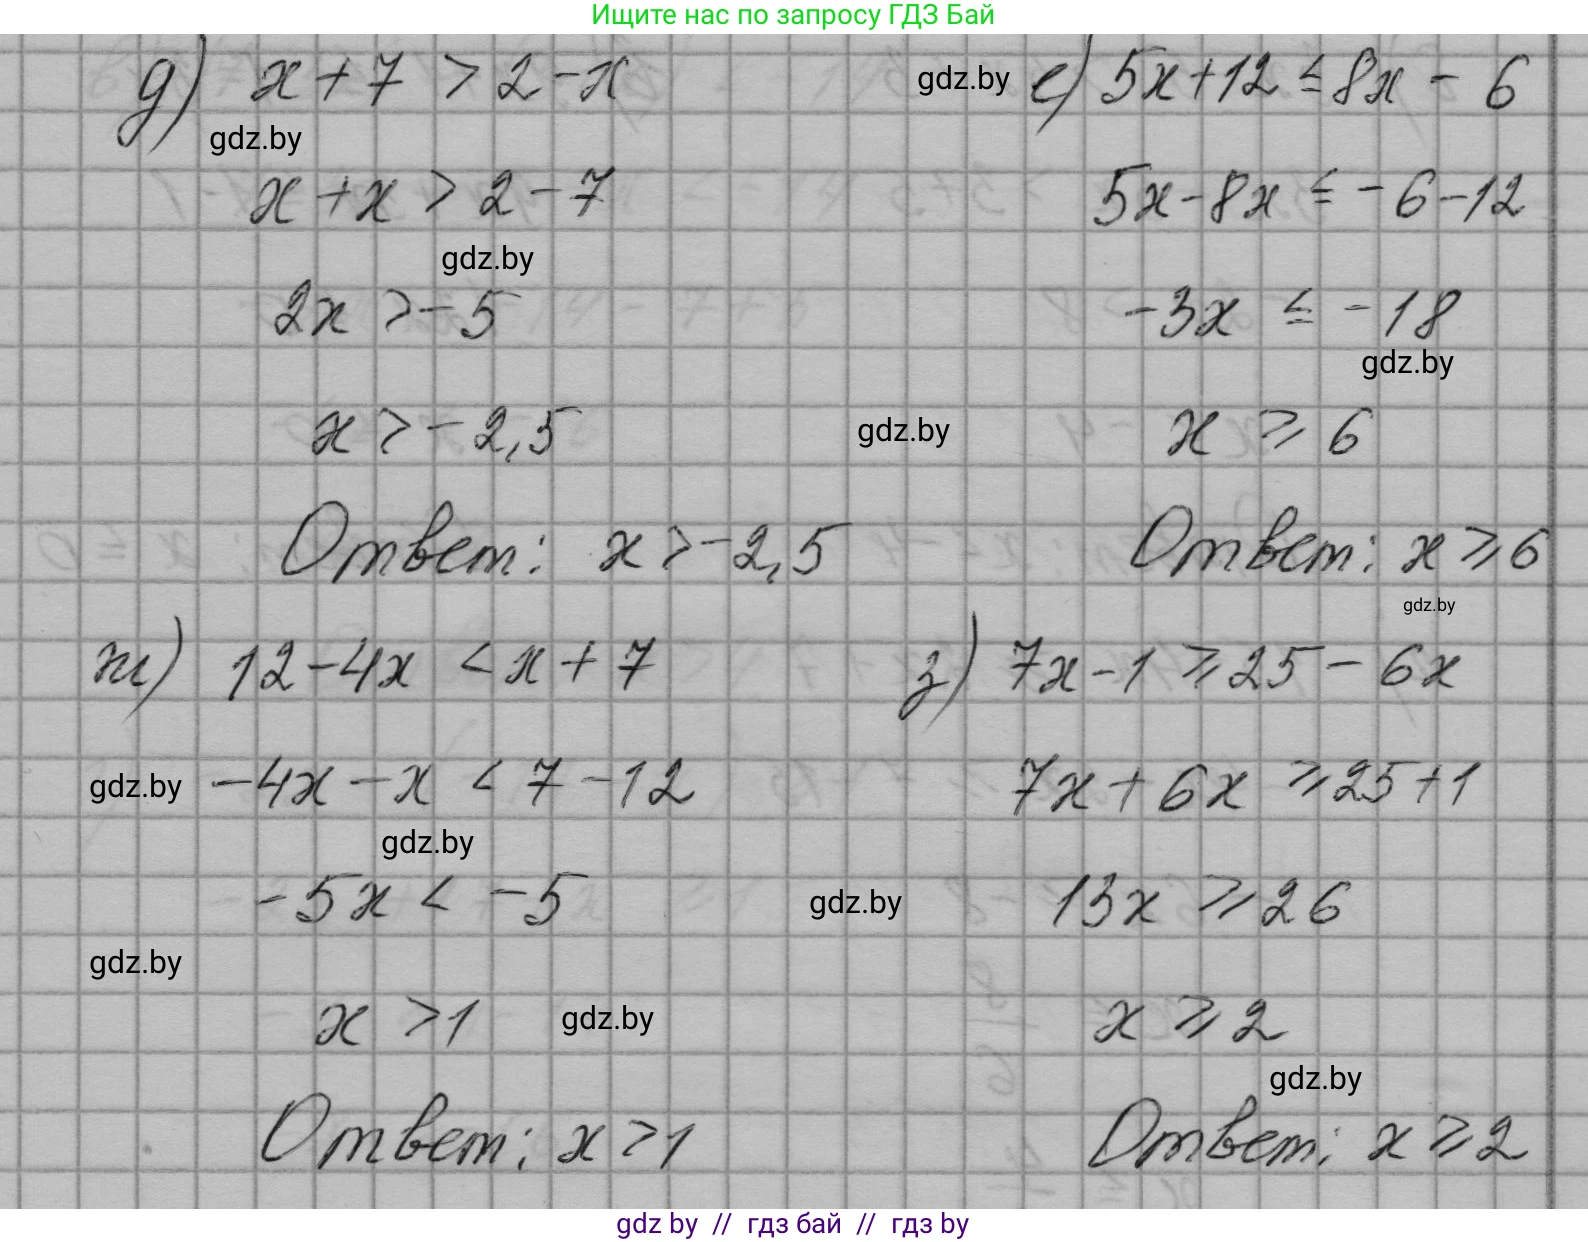 Ищите нас по запросу ГДЗ Бай
д) x + 7 > 2 - x
gdz.by
е) 5x + 12 ≤ 8x - 6
gdz.by
x + x > 2 - 7
5x - 8x ≤ - 6 - 12
gdz.by
2x > - 5
-3x ≤ - 18
gdz.by
x > - 2,5
gdz.by
x ⩾ 6
Ответ: x > - 2,5
Ответ: x ⩾ 6
gdz.by
ж) 12 - 4x < x + 7
з) 7x - 1 ⩾ 25 - 6x
gdz.by
-4x - x < 7 - 12
7x + 6x ⩾ 25 + 1
gdz.by
-5x < -5
gdz.by
13x ⩾ 26
gdz.by
x > 1
gdz.by
x ⩾ 2
gdz.by
Ответ: x > 1
Ответ: x ⩾ 2
gdz by // гдз бай // гдз by